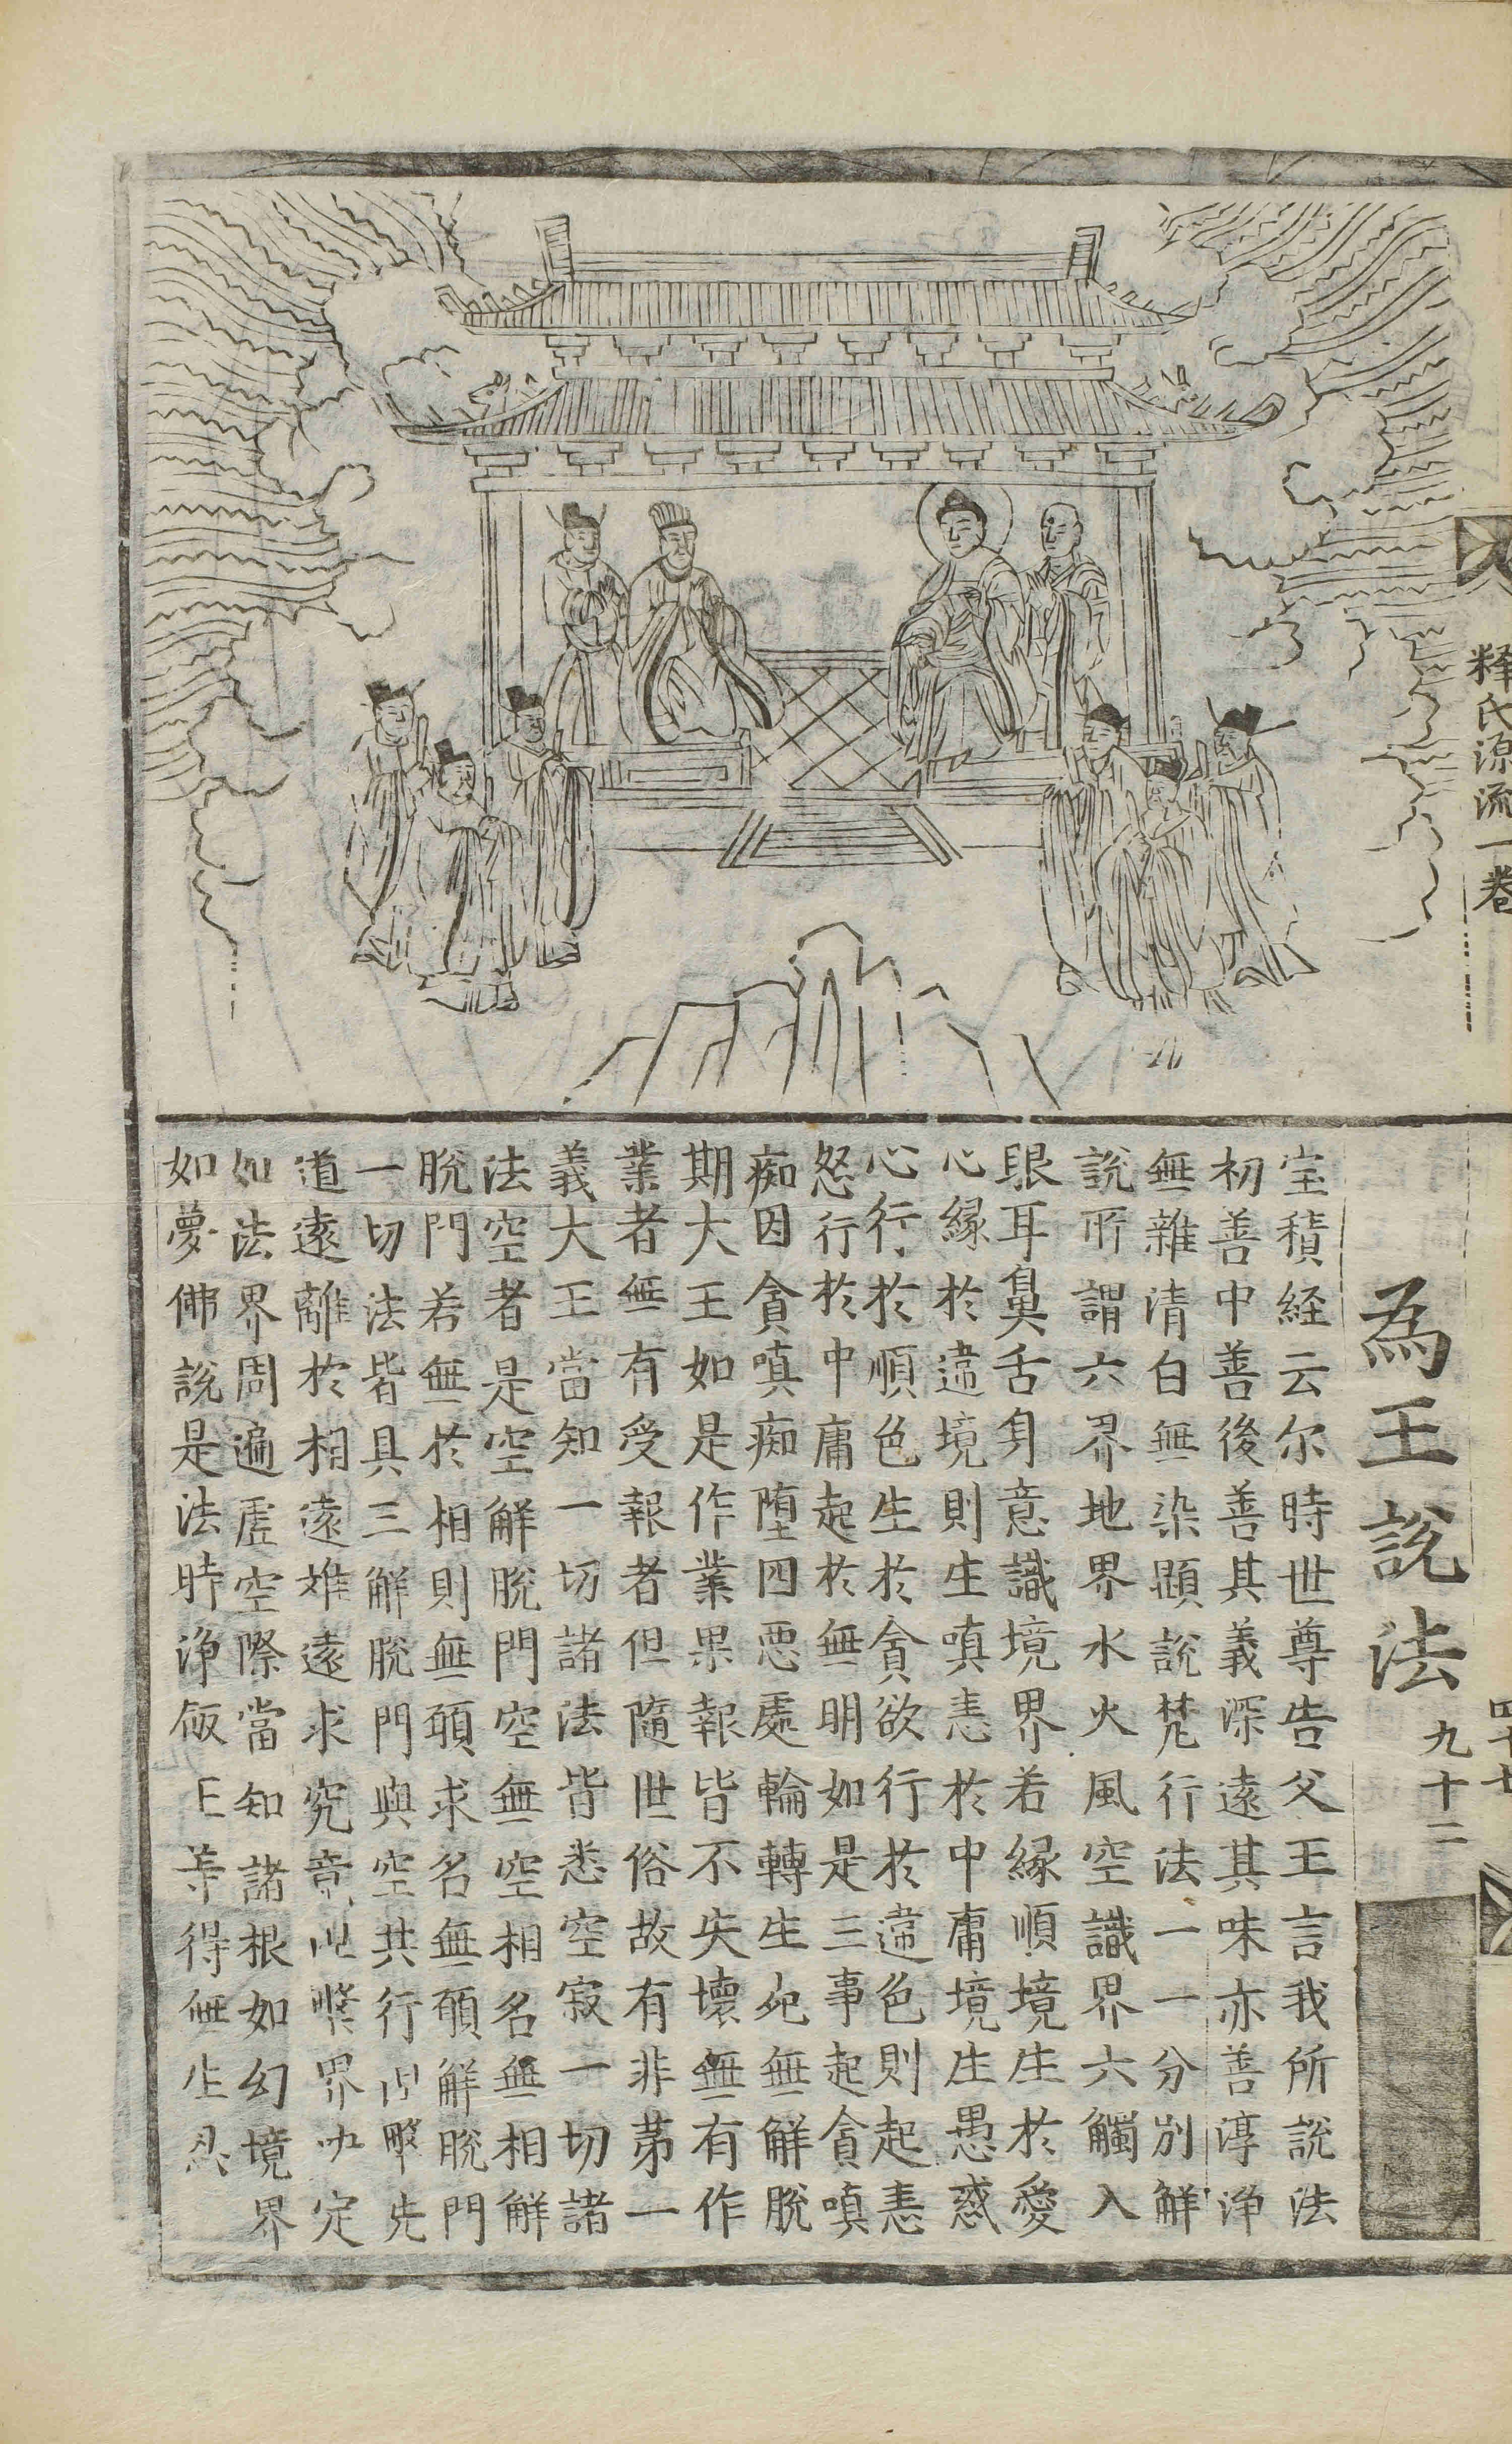 釋氏源流一卷
四十七
為王說法
九十二
宝積経云尔時世尊告父王言我所說法
初善中善後善其義深遠其味亦善淳淨
無雜清白無染顯說梵行法一一分別解
說所謂六界地界水火風空識界六觸入
眼耳鼻舌身意識境界若縁順境生於愛
心縁於違境則生嗔恚於中庸境生愚惑
心行於順色生於貪欲行於違色則起恚
怒行於中庸起於無明如是三事起貪嗔
痴因貪嗔痴堕四惡處輪轉生死無解脫
期大王如是作業果報皆不失壞無有作
業者無有受報者但隨世俗故有非苐一
義大王當知一切諸法皆悉空寂一切諸
法空者是空解脫門空無空相名無相解
脫門若無於相則無願求名無願解脫門
一切法皆具三解脫門與空共行涅槃先
道遠離於相遠離遠求究竟涅槃界決定
如法界周遍虛空際當知諸根如幻境界
如夢佛說是法時淨飯王等得無生忍